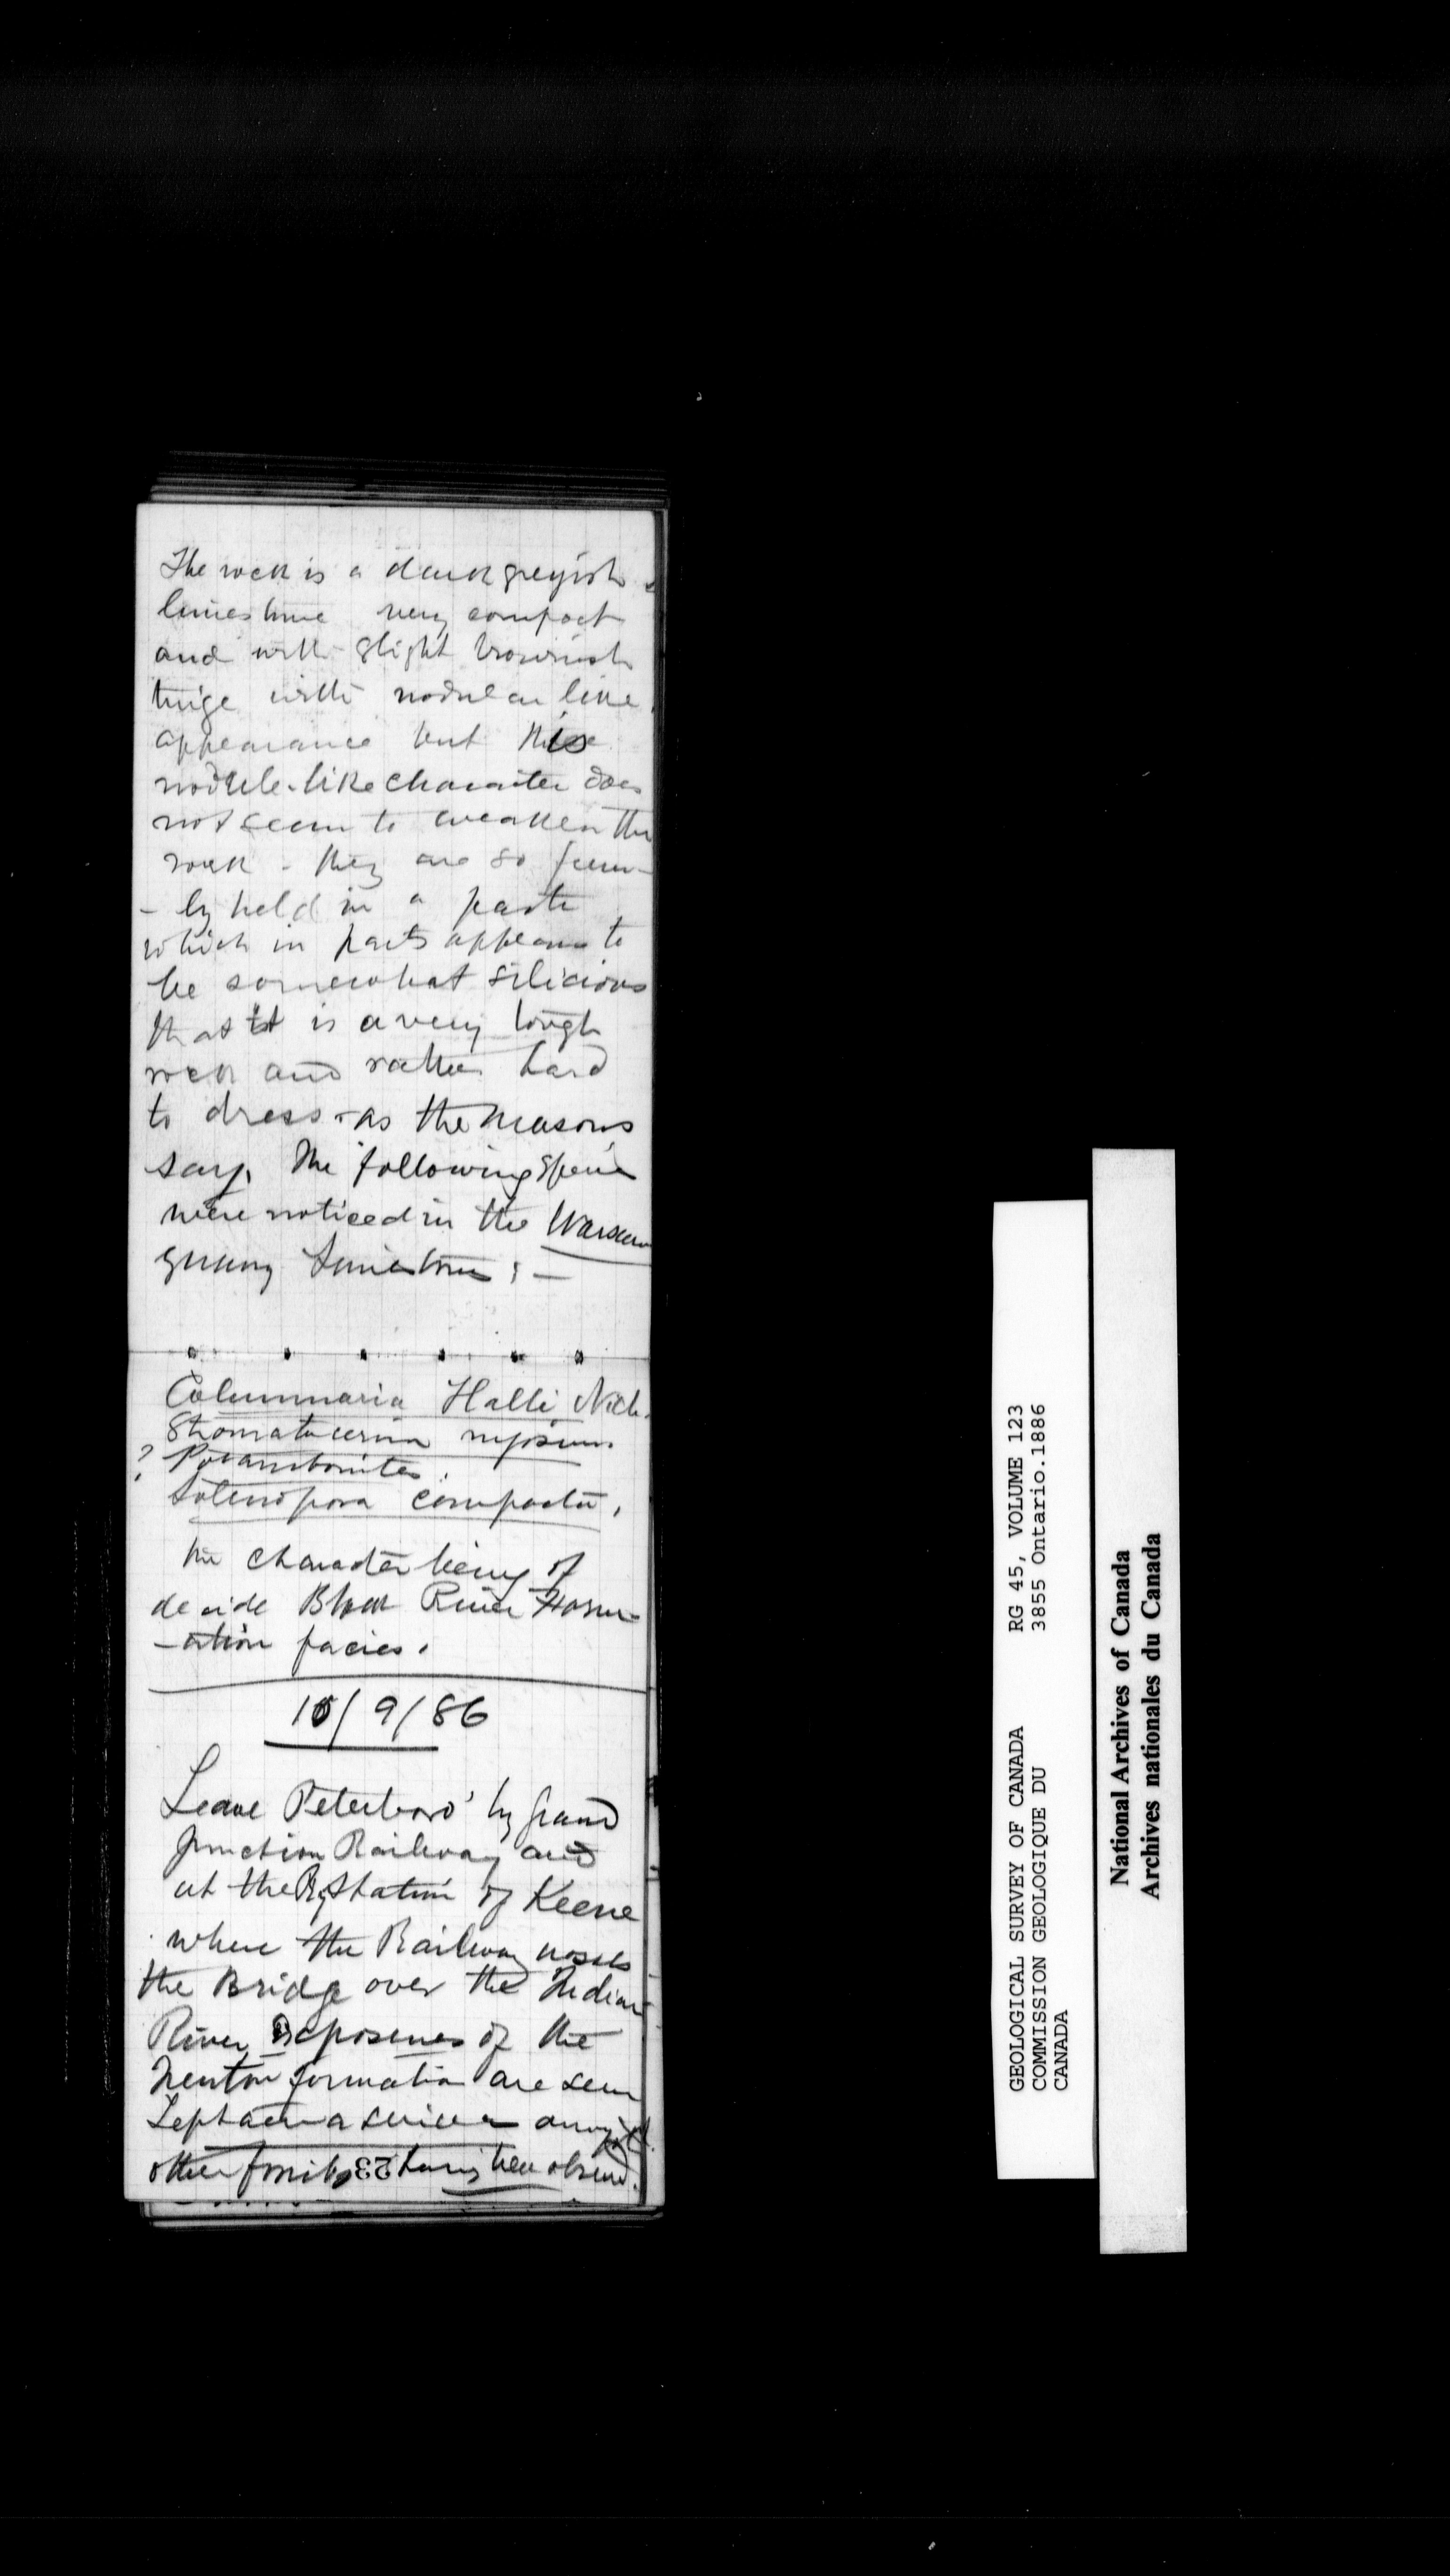 The rock is a dark greyish
limestone very compact
and with slight brownish
tinge with nodular like
appearance but this
nodule-like character does
not seem to weaken the
rock - they are so firm-
- ly held in a paste
which in parts appears to
be somewhat silicious
that it is a very tough
rock and rather hard
to dress - as the masons
say. The following species
were noticed in the Warsaw
quarry limestone : —
Columnaria Halli, Nich.
Stromatocerium rugosum
? Porambonites.
Solenopora compacta,
the character being of
decide Black River Form-
-ation facies.
10/9/86
Leave Peterboro' by Grand
Junction Railway and
at the Ry Station of Keene
where the Railway crosses
the Bridge over the Indian
River, exposures of the
Trenton formation are seen
Leptaena sericea amongst
other fossils having been observed.
23
GEOLOGICAL SURVEY OF CANADA
COMMISSION GEOLOGIQUE DU
CANADA
RG 45, VOLUME 123
3855 Ontario.1886
National Archives of Canada
Archives nationales du Canada